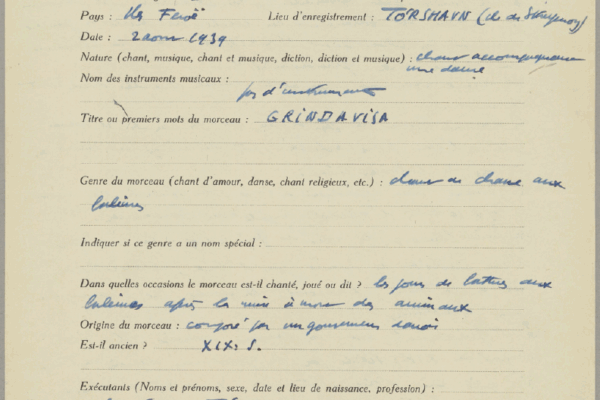 Pays : Iles Feroë Lieu d'enregistrement : TORSHAVN (ile de Strömoy)
Date : 2 aout 1939
Nature (chant, musique, chant et musique, diction, diction et musique) : chant accompagnant
une danse
Nom des instruments musicaux :
pas d'instruments
Titre ou premiers mots du morceau : GRINDAVISA
Genre du morceau (chant d'amour, danse, chant religieux, etc.) : de chasse aux
baleines
Indiquer si ce genre a un nom spécial :
Dans quelles occasions le morceau est-il chanté, joué ou dit ? les jours de battues aux
baleines après la mise à mort des animaux
Origine du morceau : composé par un gouverneur danois
Est-il ancien ? XIXe S.
Exécutants (Noms et prénoms, sexe, date et lieu de naissance, profession) :